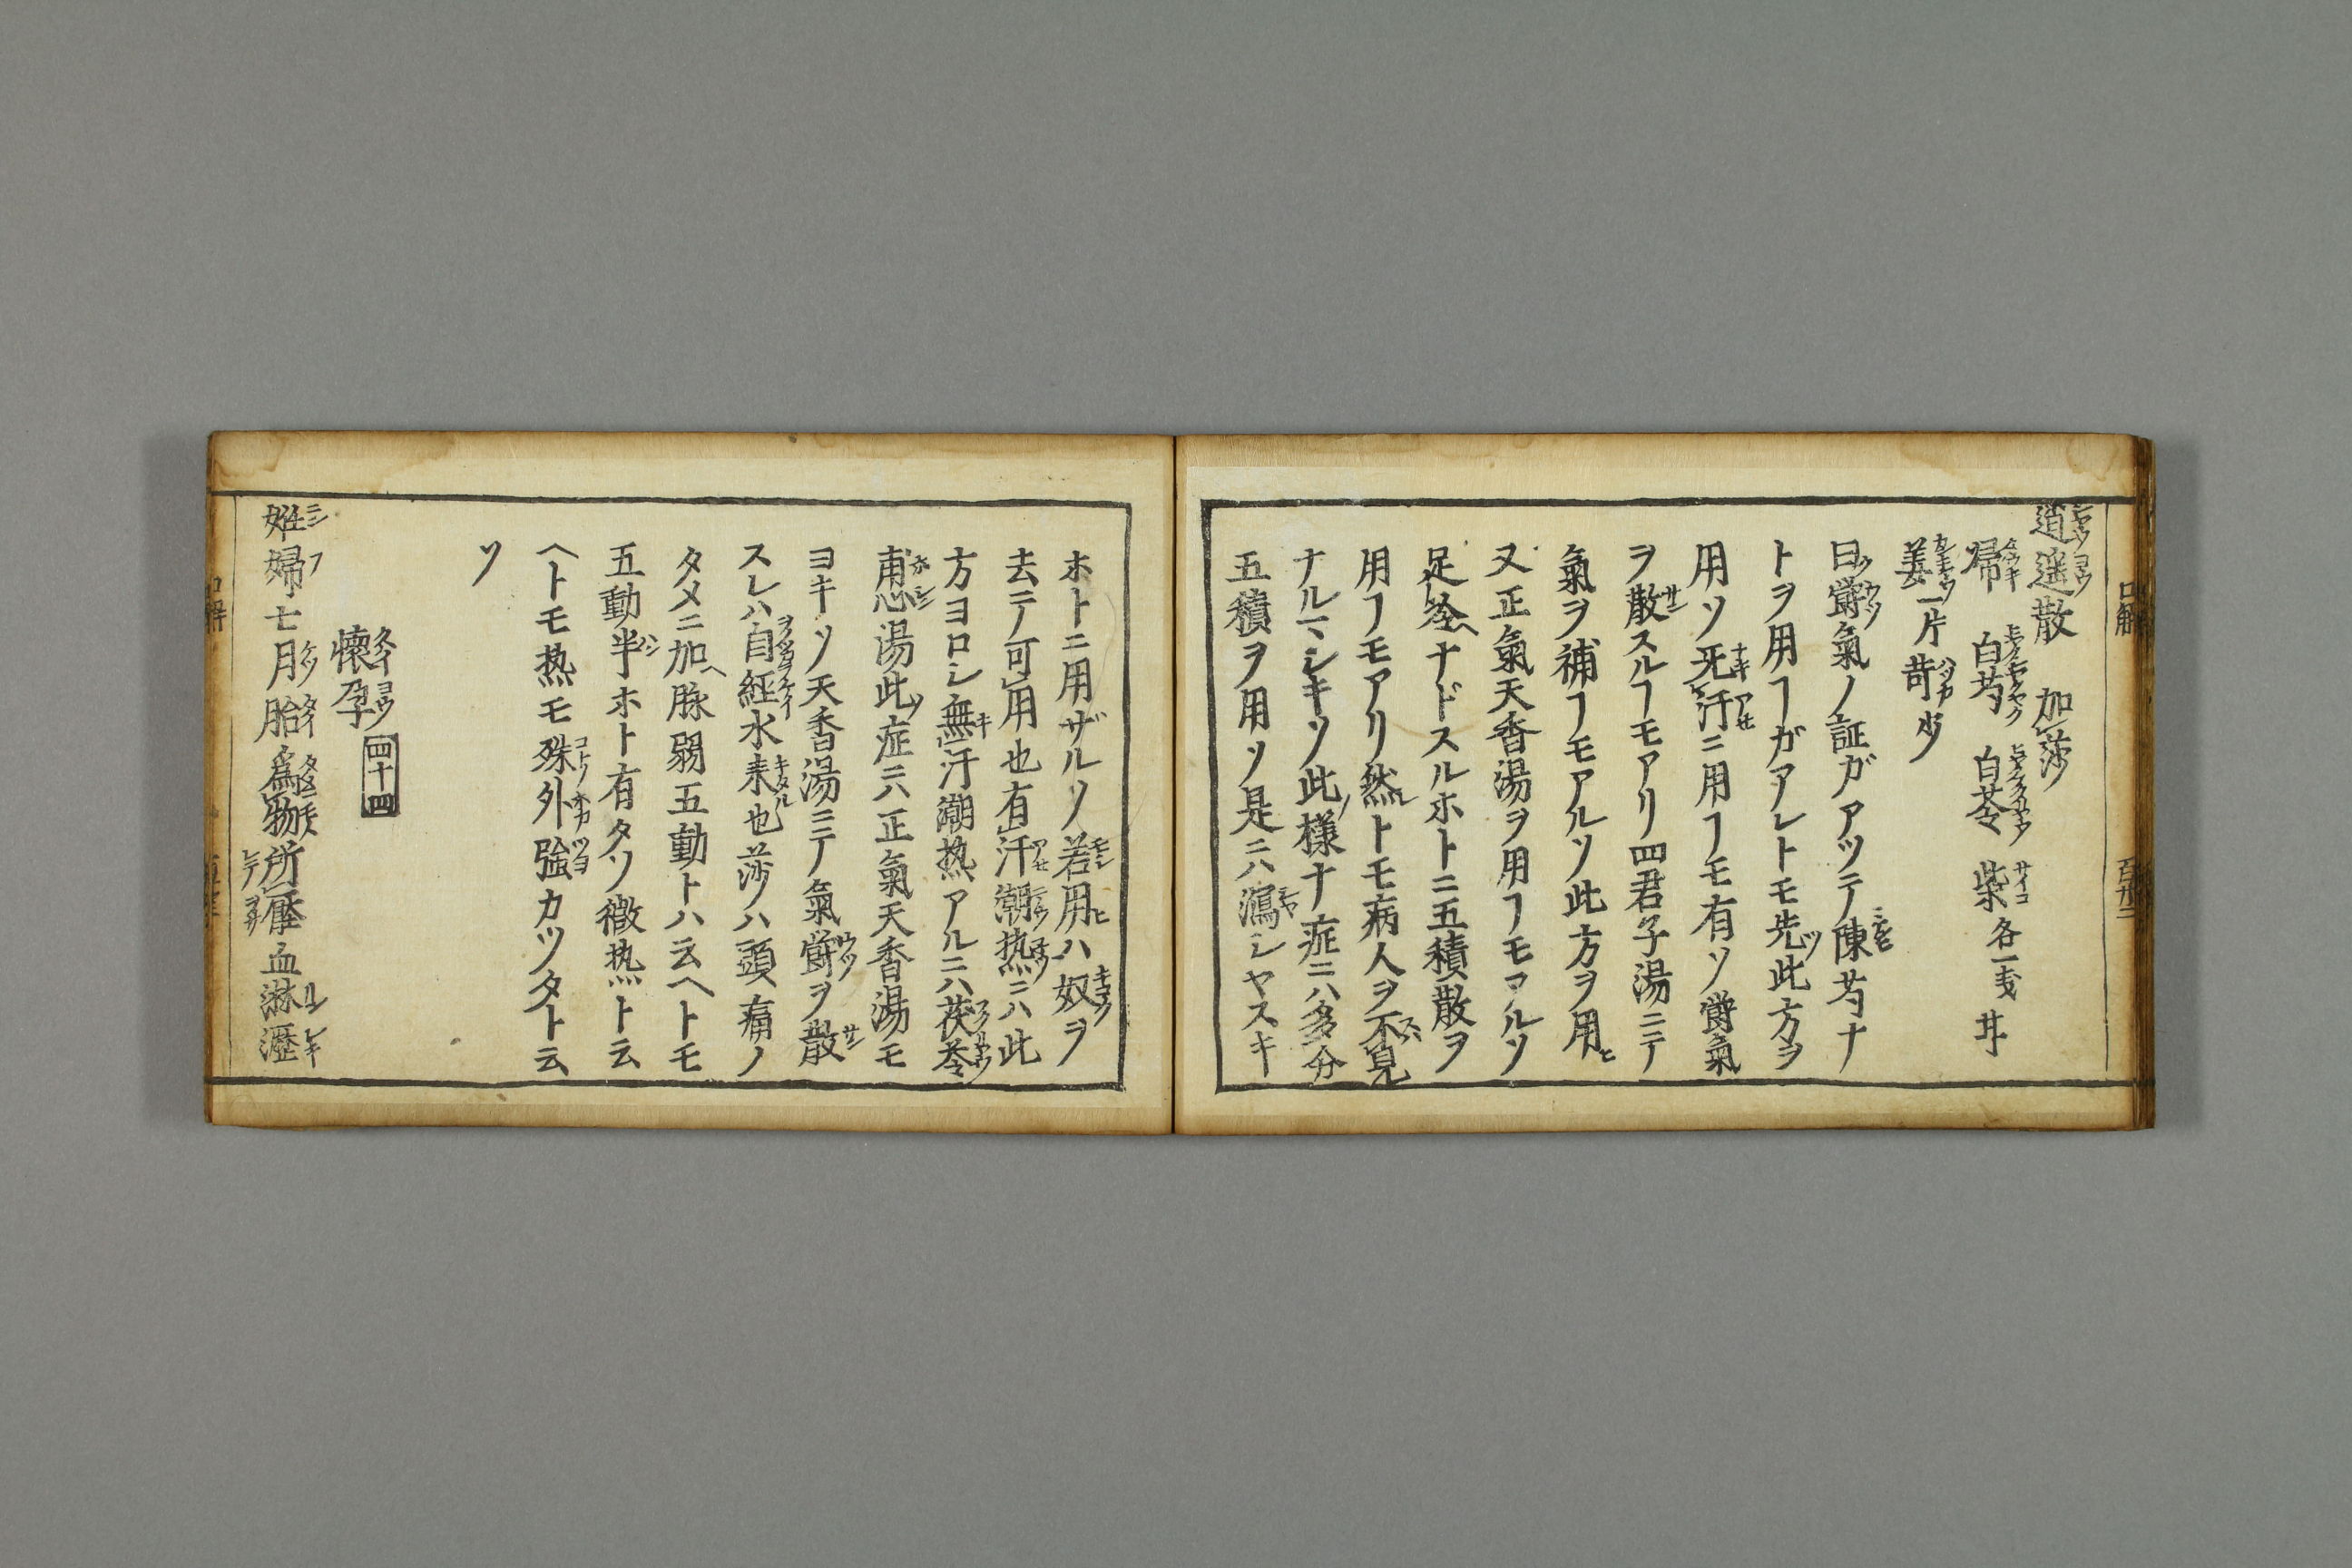 逍遥散 加莎
帰 白芍 白苓 柴各一戔 朮
姜一片 荷少
曰欝氣ノ証ガアツテ陳芍ナ
トヲ用ヿガアレトモ先此方ヲ
用ソ死汗ニ用ヿモ有ソ欝氣
ヲ散スルヿモアリ四君子湯ニテ
氣ヲ補ヿモアルソ此方ヲ用ヒ
又正氣天香湯ヲ用ヿモアルソ
足冷ナドスルホトニ五積散ヲ
用ヿモアリ然レトモ病人ヲ不見
ナルマシキソ此様ナ症ニハ多分
五積ヲ用ソ是ニハ瀉シヤスキ
ホトニ用ザルソ若用ハ奴ヲ
去テ可用也有汗潮热ニハ此
方ヨロシ無汗潮热アルニハ茯苓
湯此症ニハ正氣天香湯モ
ヨキソ天香湯ニテ氣欝ヲ散
スレハ自経水来也莎ハ頭痛ノ
タメニ加ヘ脉弱五動トハ云ヘトモ
五動半ホト有タソ微热ト云
ヘトモ热モ殊外強カツタト云
ソ
懐孕 四十四
妊婦七月胎為物所壓血淋瀝